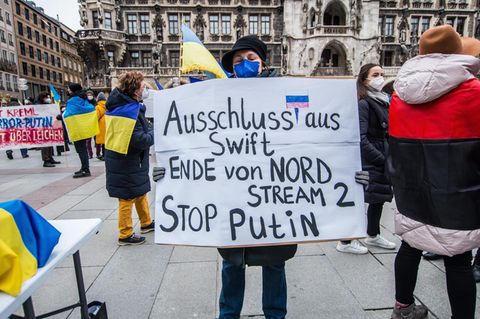 KREML
ERROR-PUTIN
T ÜBER LEICHEN
Ausschluss! aus
Swift
ENDE von NORD
STREAM 2
STOP Putin